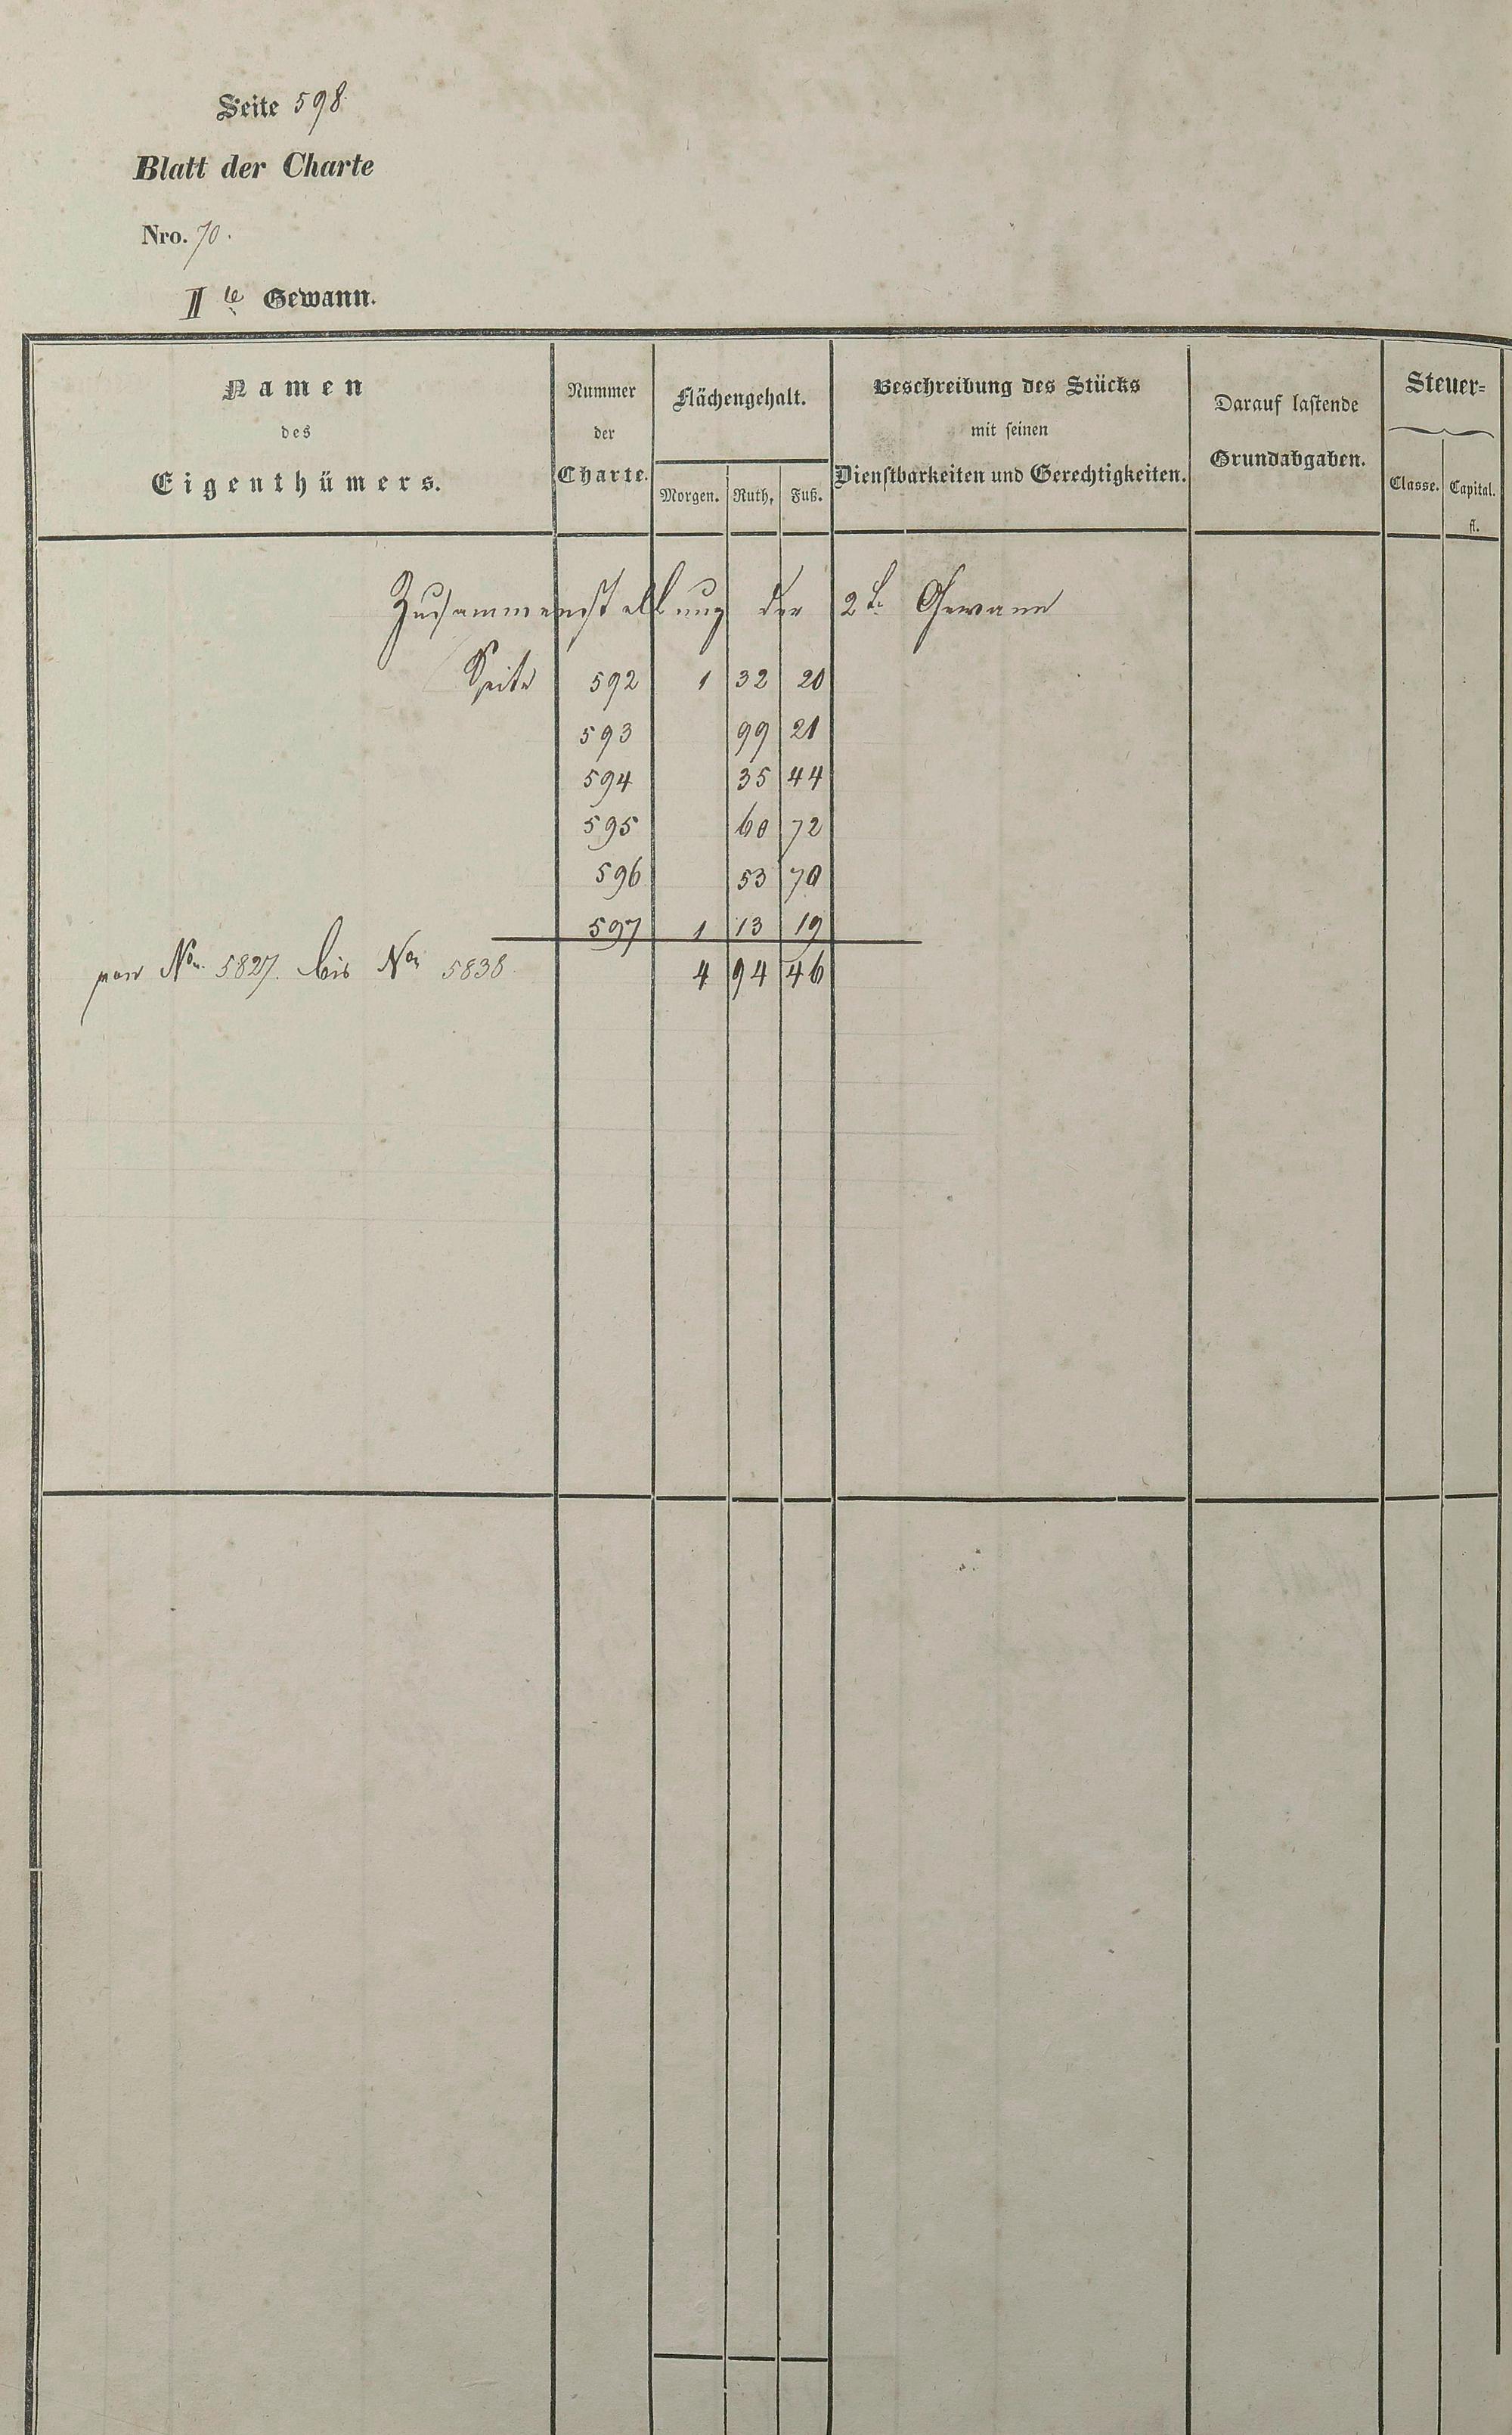 Seite 598
Blatt der Charte
Nro. 70.
II te Gewann.
Namen
des
Eigenthümers.
Nummer
der
Charte.
Flächengehalt.
Morgen. Ruth, Fuß.
Beschreibung des Stücks
mit seinen
Dienstbarkeiten und Gerechtigkeiten.
Darauf lastende
Grundabgaben.
Steuer=
Classe. Capital.
fl.
Zusammenstellung der 2t. Gewann
Seite 592 1 32 20
593 99 21
594 35 44
595 60 72
596 53 70
597 1 13 19
von Nro. 5827. bis Nro 5838 4 94 46